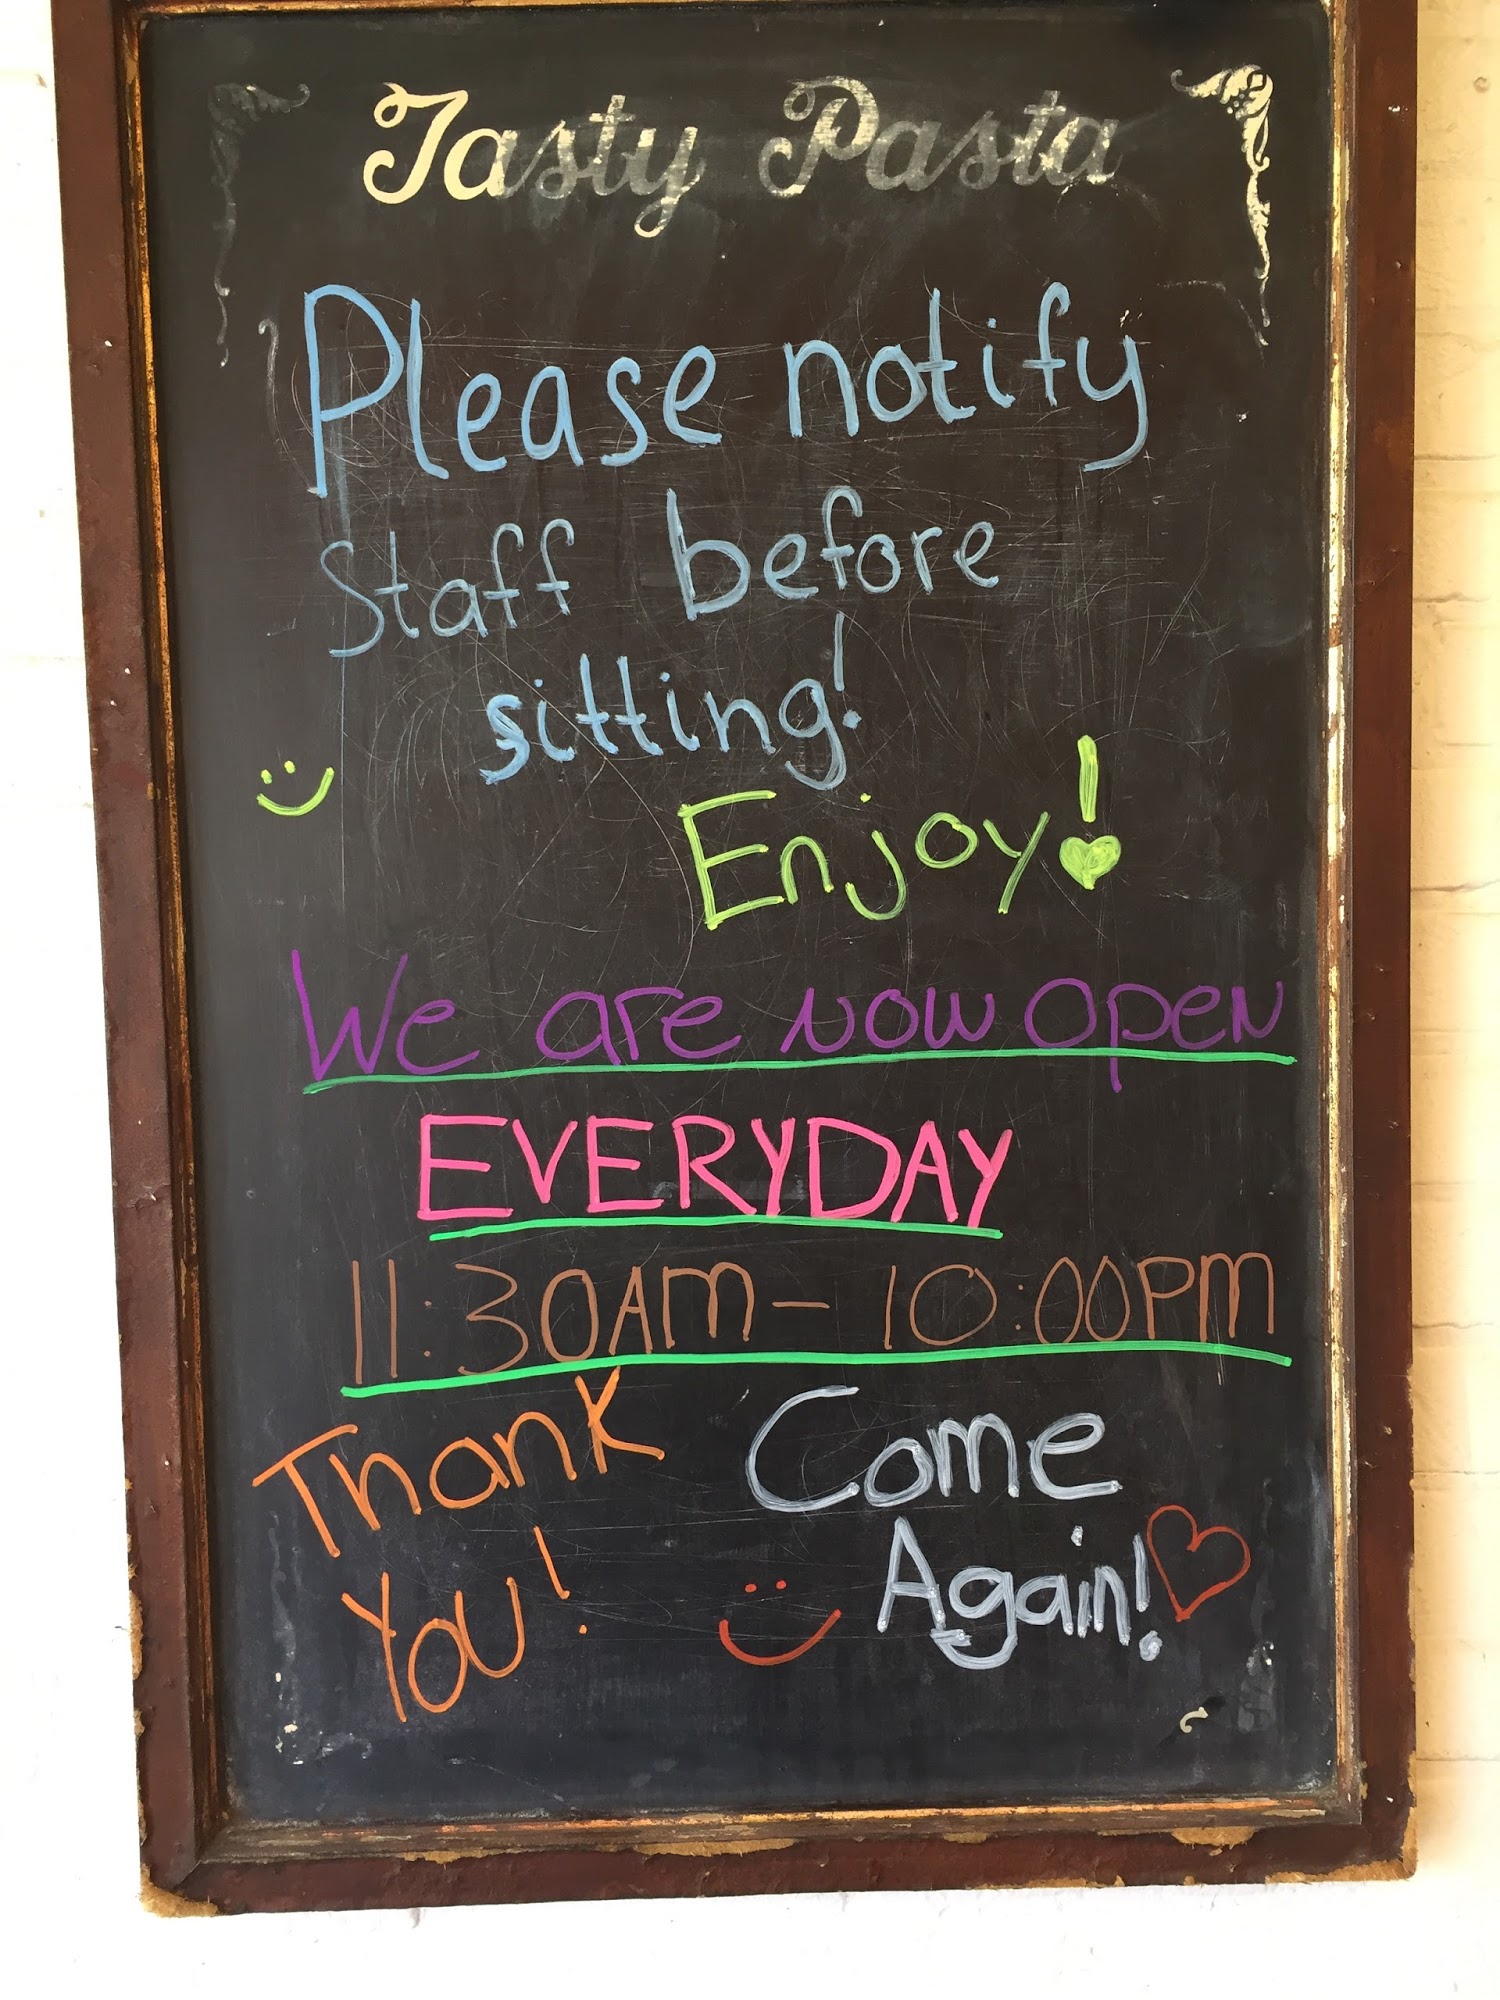 Tasty Pasta
Please notify
staff before
sitting!
Enjoy!
We are now open
EVERYDAY
11:30AM - 10:00PM
Thank
You!
Come
Again!